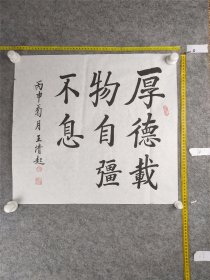 厚德載
物自彊
不息
丙申菊月王清起